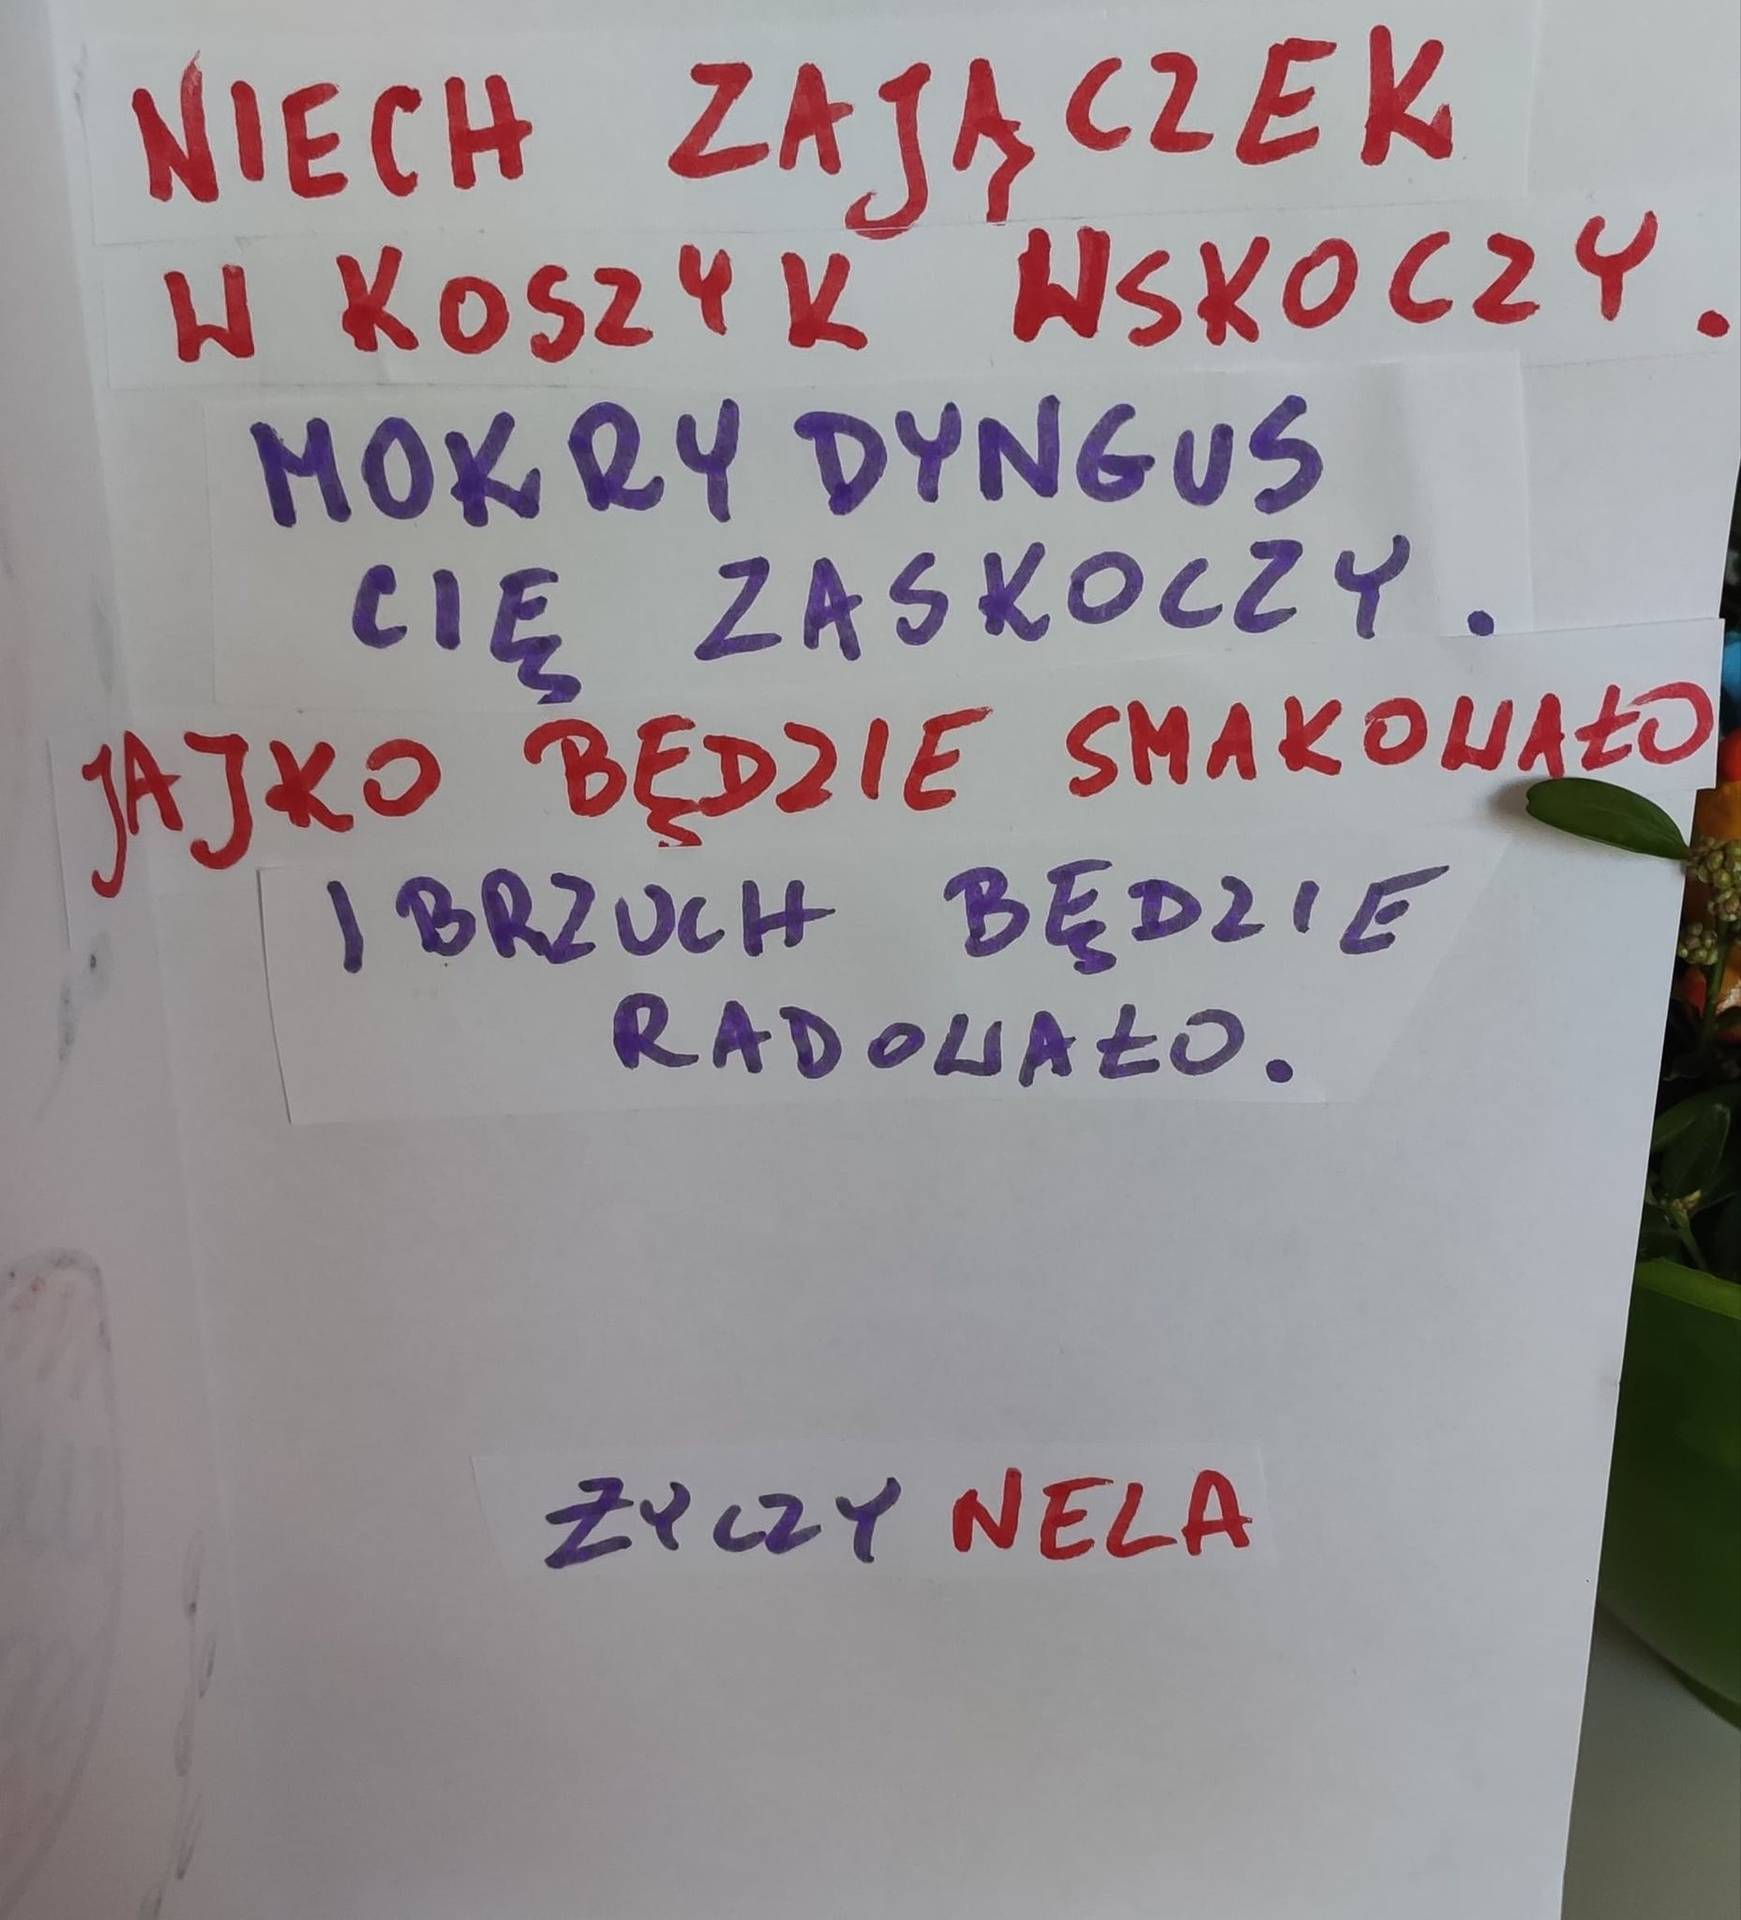 NIECH ZAJĄCZEK
W KOSZYK WSKOCZY.
MOKRY DYNGUS
CIĘ ZASKOCZY.
JAJKO BĘDZIE SMAKOWAŁO
I BRZUCH BĘDZIE
RADOWAŁO.
ŻYCZY NELA